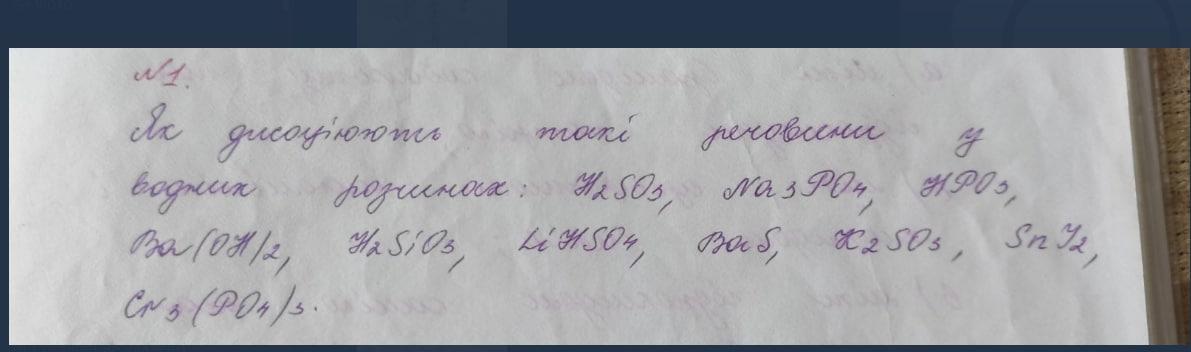 №1.
Як дисоціюють такі речовини у
водних розчинах: H2SO3, Na3PO4, HPO3,
Ba(OH)2, H2SiO3, LiHSO4, BaS, K2SO3, SnI2,
Cr3(PO4)3.